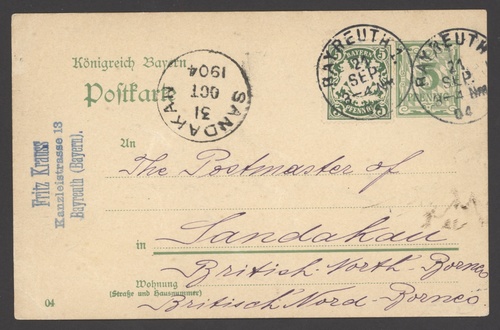 Königreich Bayern
Postkarte
SANDAKAN
31
OCT
1904
BAYREUTH
21
SEP.
BAYERN
5
PFENNIG
BAYREUTH
21
SEP.
04
5
PFENNIG
Fritz Krauss
Kanzleistrasse 13
Bayreuth (Bayern).
An
The Postmaster of
in
Sandakan
British-North-Borneo
Wohnung
(Straße und Hausnummer)
Britisch Nord-Borneo
04